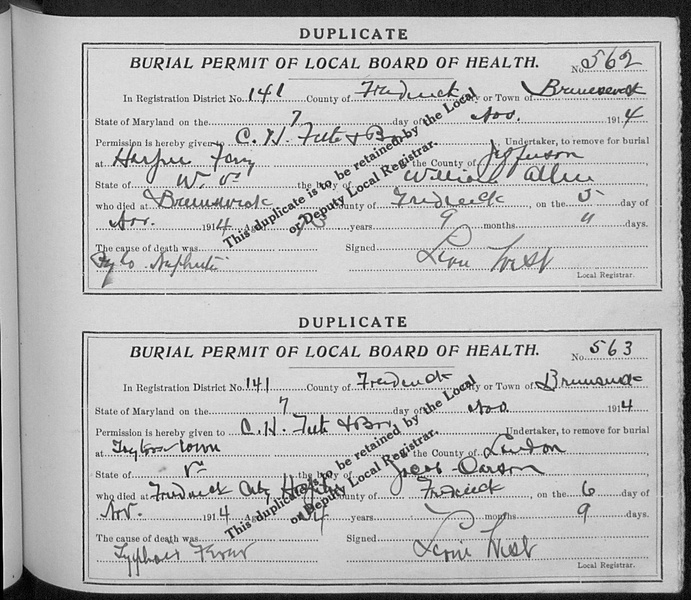 DUPLICATE
BURIAL PERMIT OF LOCAL BOARD OF HEALTH.
No. 562
In Registration District No. 141 County of Frederick City or Town of Brunswick
State of Maryland on the 7 day of Nov. 1914
Permission is hereby given to C. H. Feete & Bro. Undertaker, to remove for burial
at Harpers Ferry the County of Jefferson
State of W. Va the body of William Allen
who died at Brunswick County of Frederick, on the 5 day of
Nov. 1914 aged years 9 months " days.
The cause of death was Signed
Nephritis Leon West
Local Registrar.
This duplicate is to be retained by the Local
or Deputy Local Registrar.
DUPLICATE
BURIAL PERMIT OF LOCAL BOARD OF HEALTH.
No. 563
In Registration District No. 141 County of Frederick City or Town of Brunswick
State of Maryland on the 7 day of Nov. 1914
Permission is hereby given to C. H. Feete & Bro. Undertaker, to remove for burial
at town the County of Loudon
State of Va the body of Jacob Carson
who died at Frederick City Hospital County of Frederick, on the 6 day of
Nov. 1914 aged years months 9 days.
The cause of death was Signed
Typhoid Fever Leon West
Local Registrar.
This duplicate is to be retained by the Local
or Deputy Local Registrar.